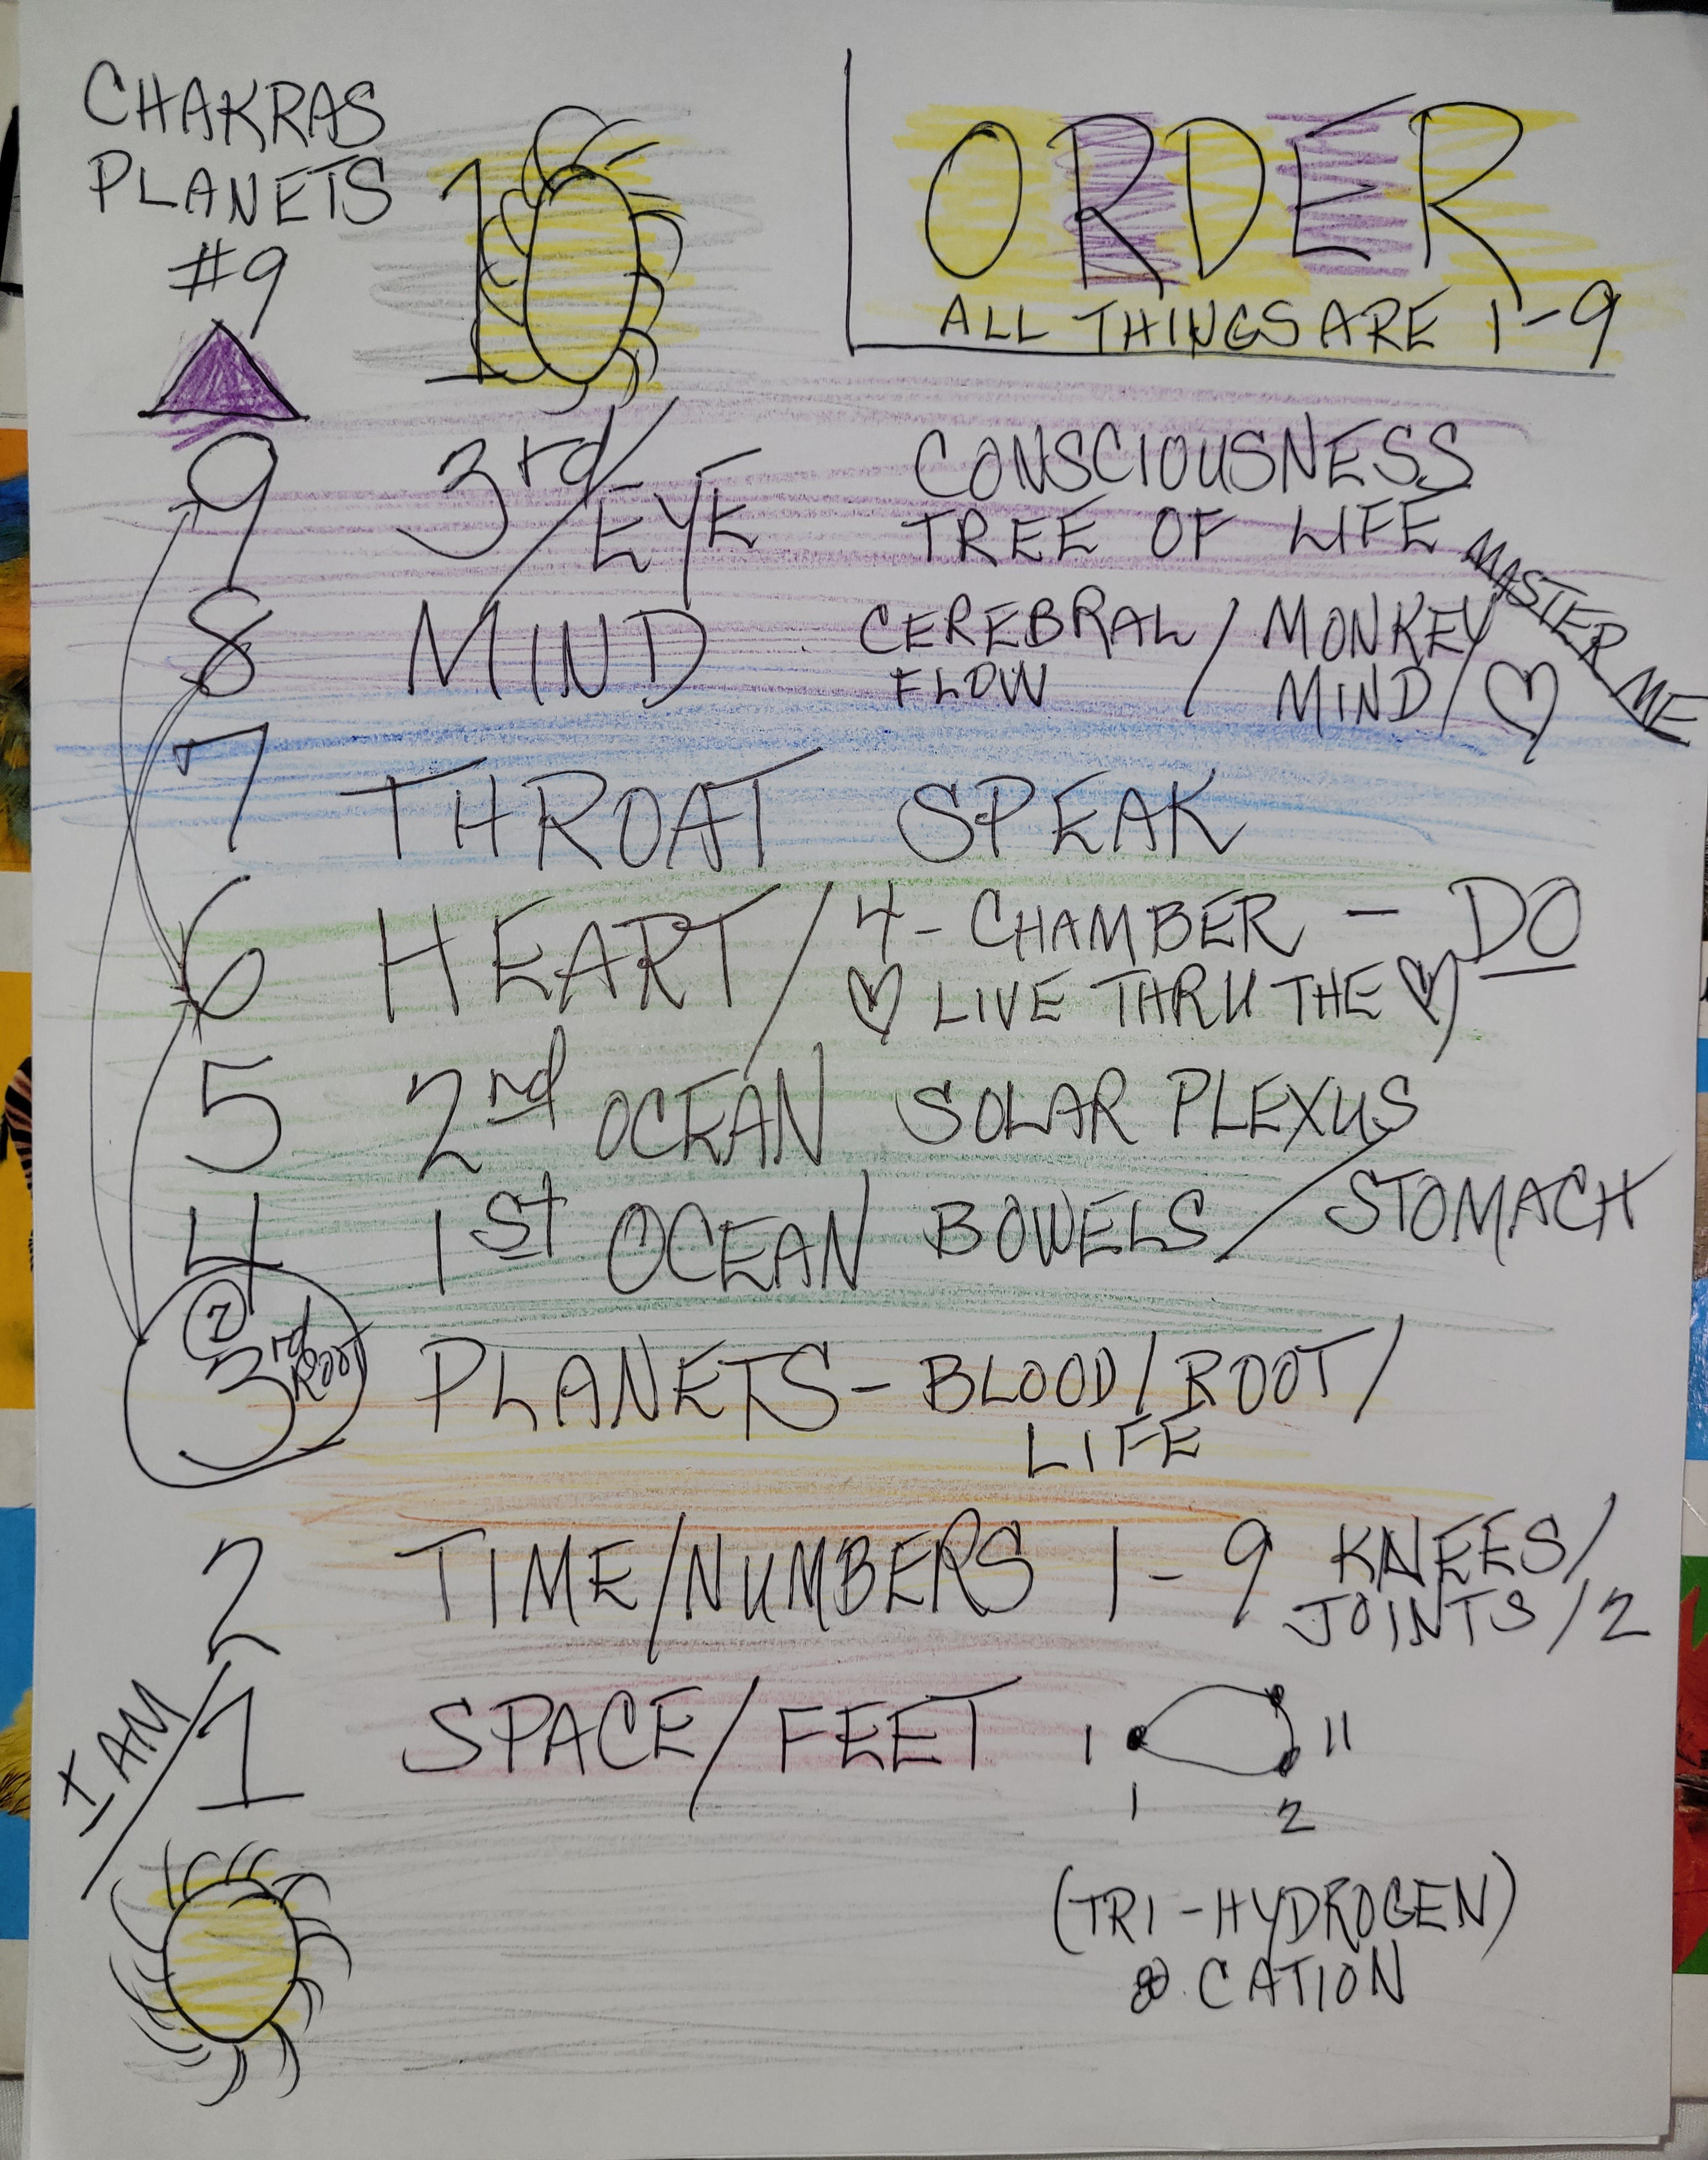 CHAKRAS
PLANETS
#9
10
ORDER
ALL THINGS ARE 1-9
9 3rd/EYE CONSCIOUSNESS
TREE OF LIFE
MASTER ME
8 MIND CEREBRAL / MONKEY
FLOW MIND/♡
7 THROAT SPEAK
6 HEART/ 4-CHAMBER - DO
♡ LIVE THRU THE ♡
5 2nd OCEAN SOLAR PLEXUS
4 1st OCEAN BOWELS/STOMACH
3rd ROOT PLANETS-BLOOD/ROOT/
LIFE
2 TIME/NUMBERS 1-9 KNEES/
JOINTS/2
I AM/1 SPACE/FEET 1 11
1 2
(TRI-HYDROGEN)
CATION